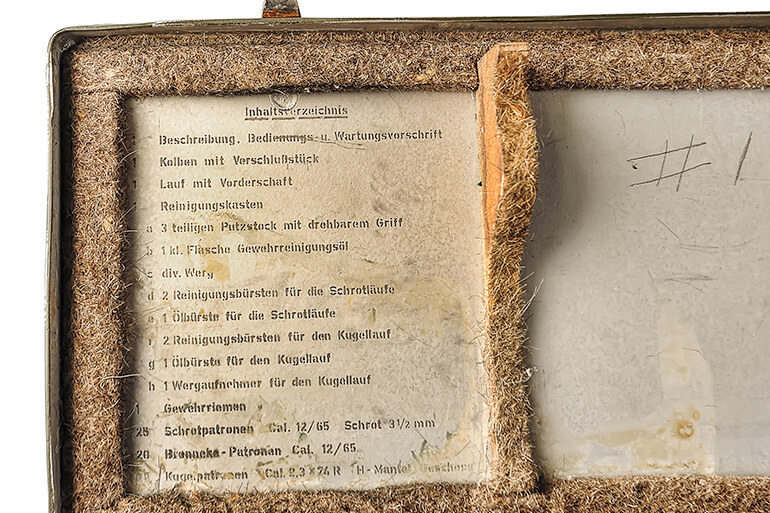 Inhaltsverzeichnis
Beschreibung, Bedienungs- u. Wartungsvorschrift
1 Kolben mit Verschlußstück
1 Lauf mit Vorderschaft
Reinigungskasten
a 3 teiligen Putzstock mit drehbarem Griff
b 1 kl. Flasche Gewehrreinigungsöl
c div. Werg
d 2 Reinigungsbürsten für die Schrotläufe
e 1 Ölbürste für die Schrotläufe
f 2 Reinigungsbürsten für den Kugellauf
g 1 Ölbürste für den Kugellauf
h 1 Wergaufnehmer für den Kugellauf
1 Gewehrriemen
25 Schrotpatronen Cal. 12/65 Schrot 3 1/2 mm
20 Brenneke-Patronen Cal. 12/65
Kugelpatronen Cal. 9,3 x 74 R H-Mantel Geschoß
# 1